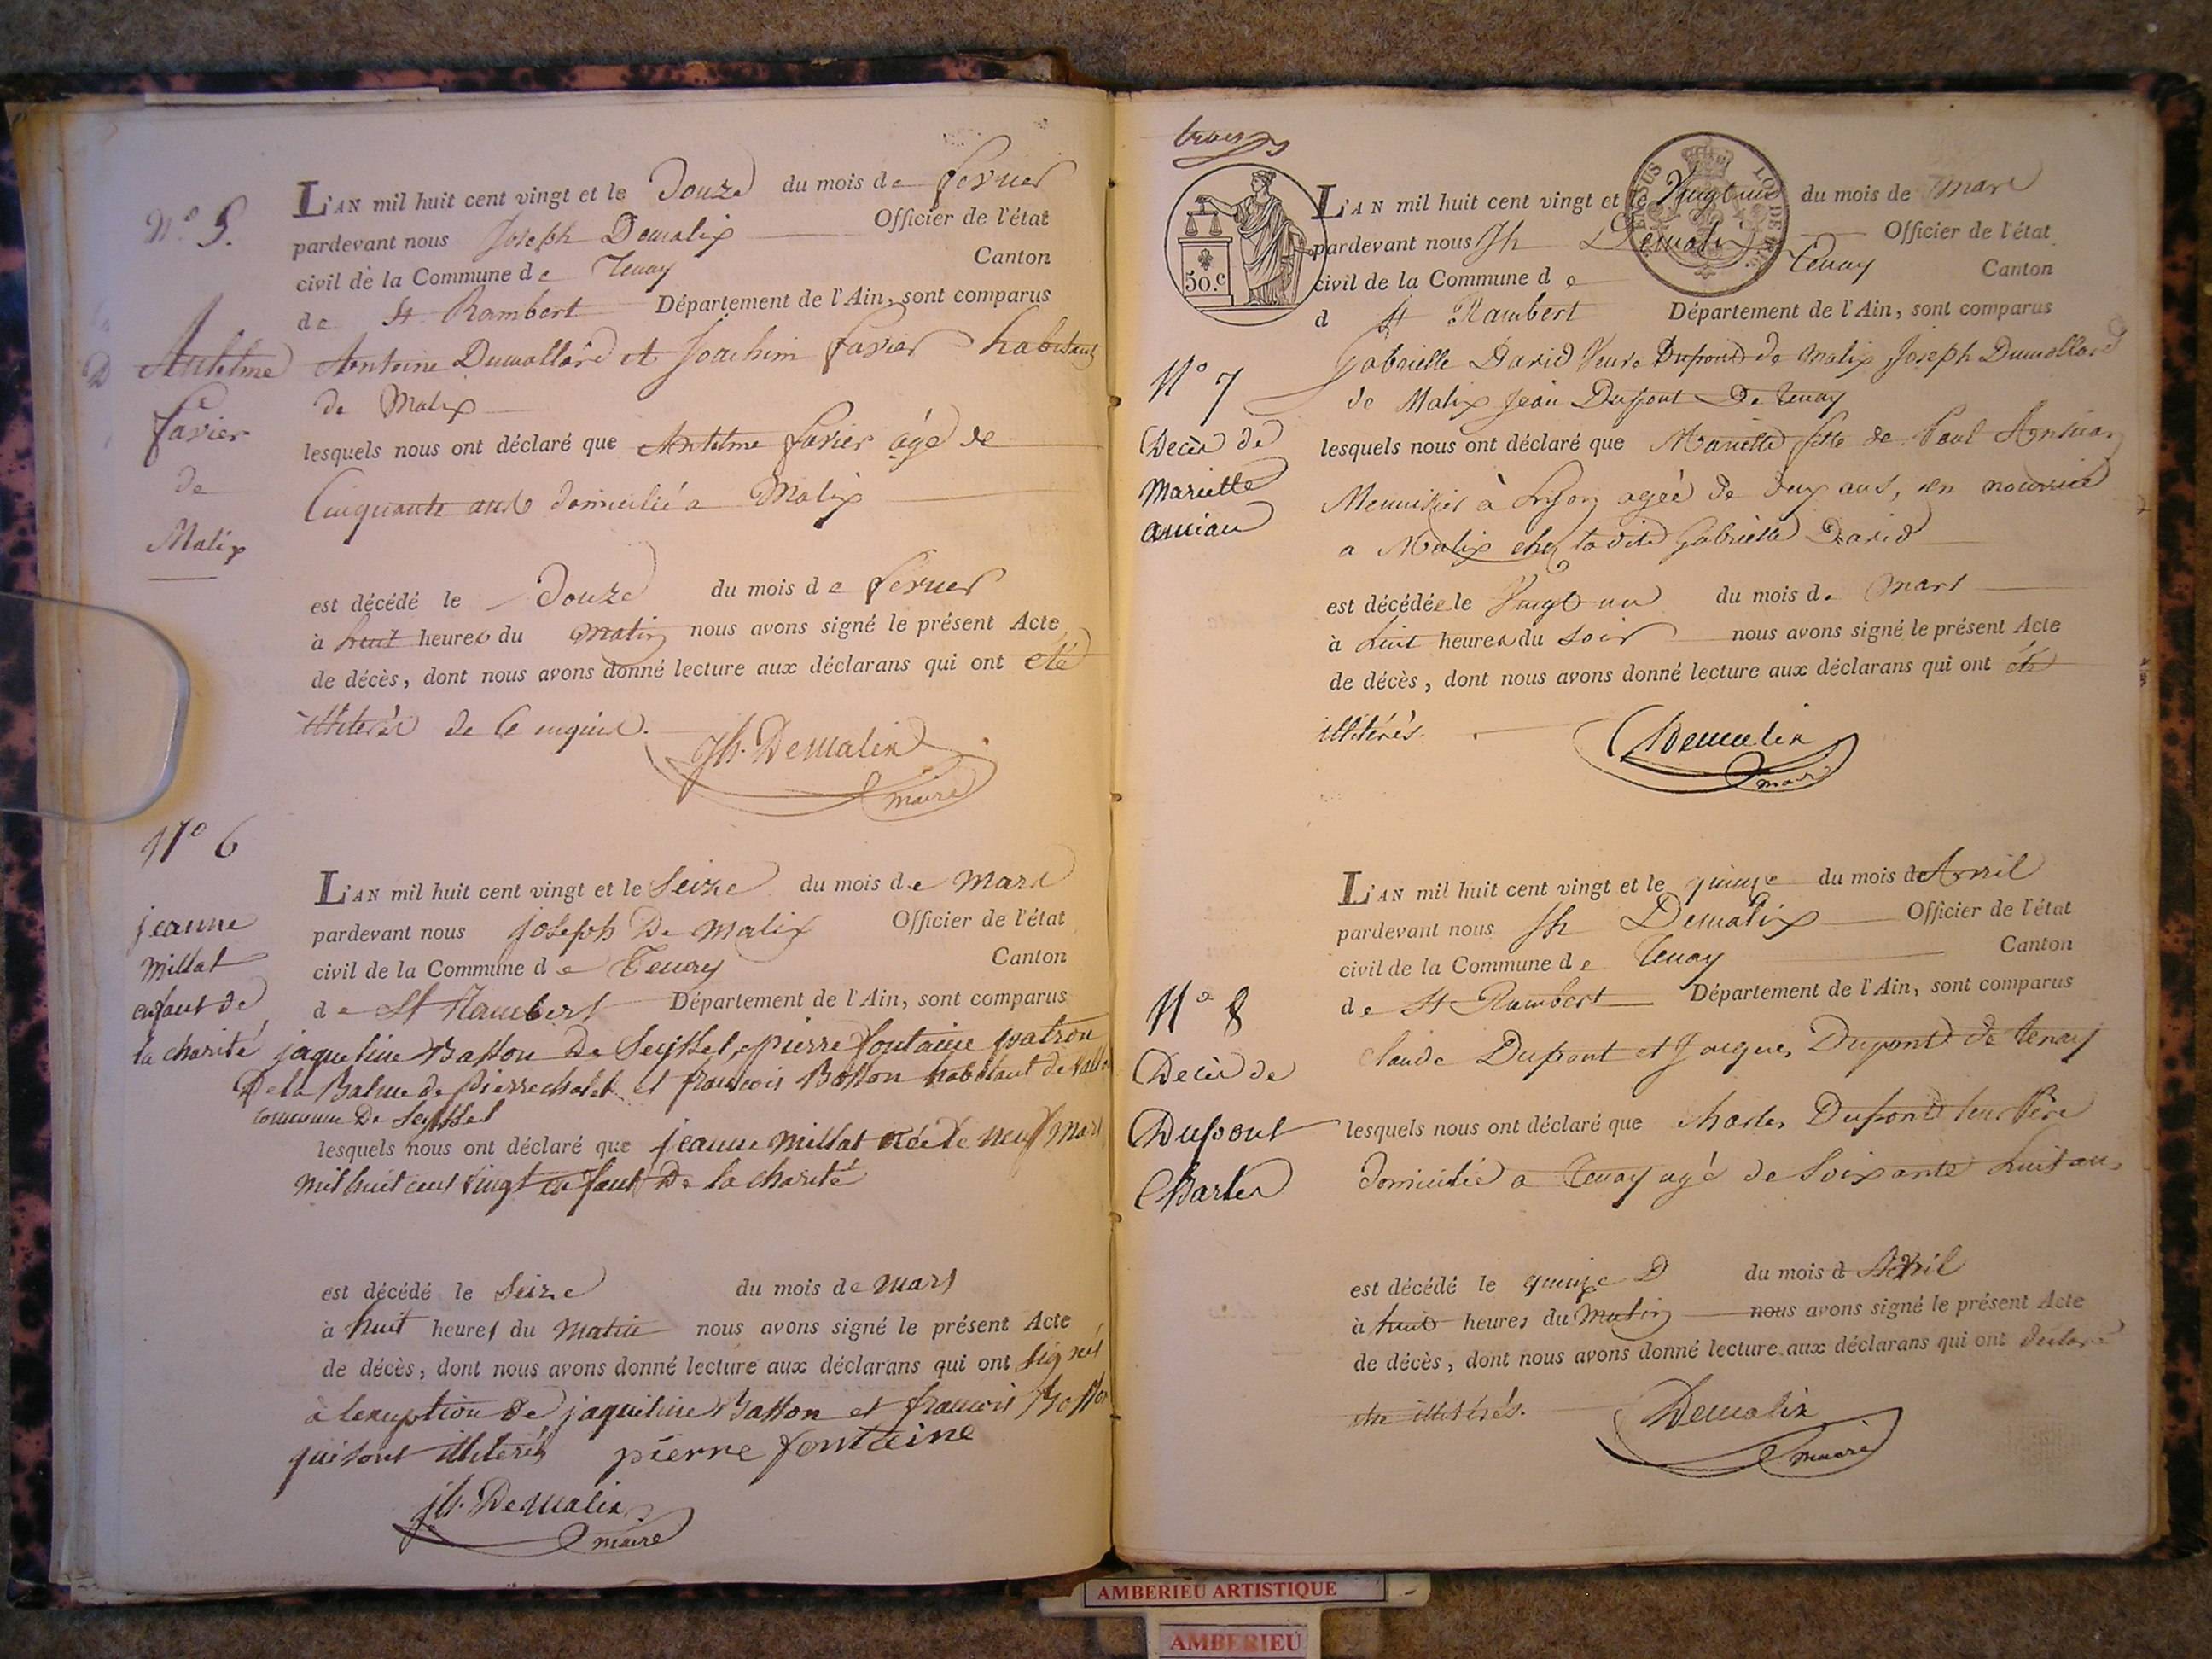 N.º 5.
Antelme
favier
de
Malix
L'AN mil huit cent vingt et le Douze du mois de fevrier
pardevant nous Joseph Demalix Officier de l'état
civil de la Commune de Tenay Canton
de St Rambert Département de l'Ain, sont comparus
Antoine Dumollard et Joachim favier habitants
de Malix
lesquels nous ont déclaré que Antelme favier agé de
Cinquante ans domicilié a Malix
est décédé le Douze du mois de fevrier
à huit heures du matin nous avons signé le présent Acte
de décès, dont nous avons donné lecture aux déclarans qui ont été
illiterés de ce requis.
Jh. Demalix
maire
Nº 6
jeanne
millat
enfant de
la charité
L'AN mil huit cent vingt et le Seize du mois de Mars
pardevant nous joseph De Malix Officier de l'état
civil de la Commune de Tenay Canton
de St Rambert Département de l'Ain, sont comparus
jaqueline Basson De Seyssel, pierre fontaine patron
De la Balme de pierrechatel et francois Bosson habitant de
commune De Seyssel
lesquels nous ont déclaré que jeanne millat née le neuf mars
mil huit cent vingt enfant De la charité
est décédé le Seize du mois de mars
à huit heures du matin nous avons signé le présent Acte
de décès, dont nous avons donné lecture aux déclarans qui ont signés
à lexception de jaqueline Basson et francois Bosson
qui sont illiterés pierre fontaine
jh. Demalix
maire
50.c
Nº 7
Decès de
Mariette
amian
L'AN mil huit cent vingt et le Vingt un du mois de mars
pardevant nous Jh Demalix Officier de l'état
civil de la Commune de Tenay Canton
d St Rambert Département de l'Ain, sont comparus
Gabrielle David Veuve Dupont de Malix Joseph Dumollard
de Malix Jean Dupont De Tenay
lesquels nous ont déclaré que Mariette fille de Paul
Menuisier à Lyon agée de deux ans, en nourrice
a Malix chez la dite Gabrielle David
est décédée le Vingt un du mois de mars
à huit heures du soir nous avons signé le présent Acte
de décès, dont nous avons donné lecture aux déclarans qui ont été
illitérés.
Demalix
maire
Nº 8
Decès de
Dupont
Charles
L'AN mil huit cent vingt et le quinze du mois de Avril
pardevant nous Jh Demalix Officier de l'état
civil de la Commune de Tenay Canton
de St Rambert Département de l'Ain, sont comparus
Claude Dupont et Jacques Dupont de tenay
lesquels nous ont déclaré que charles Dupont leur Père
domicilié a Tenay agé de Soixante huit ans
est décédé le quinze du mois d Avril
à huit heures du Matin nous avons signé le présent Acte
de décès, dont nous avons donné lecture aux déclarans qui ont declaré
etre illiterés.
Demalix
maire
AMBERIEU ARTISTIQUE
AMBERIEU